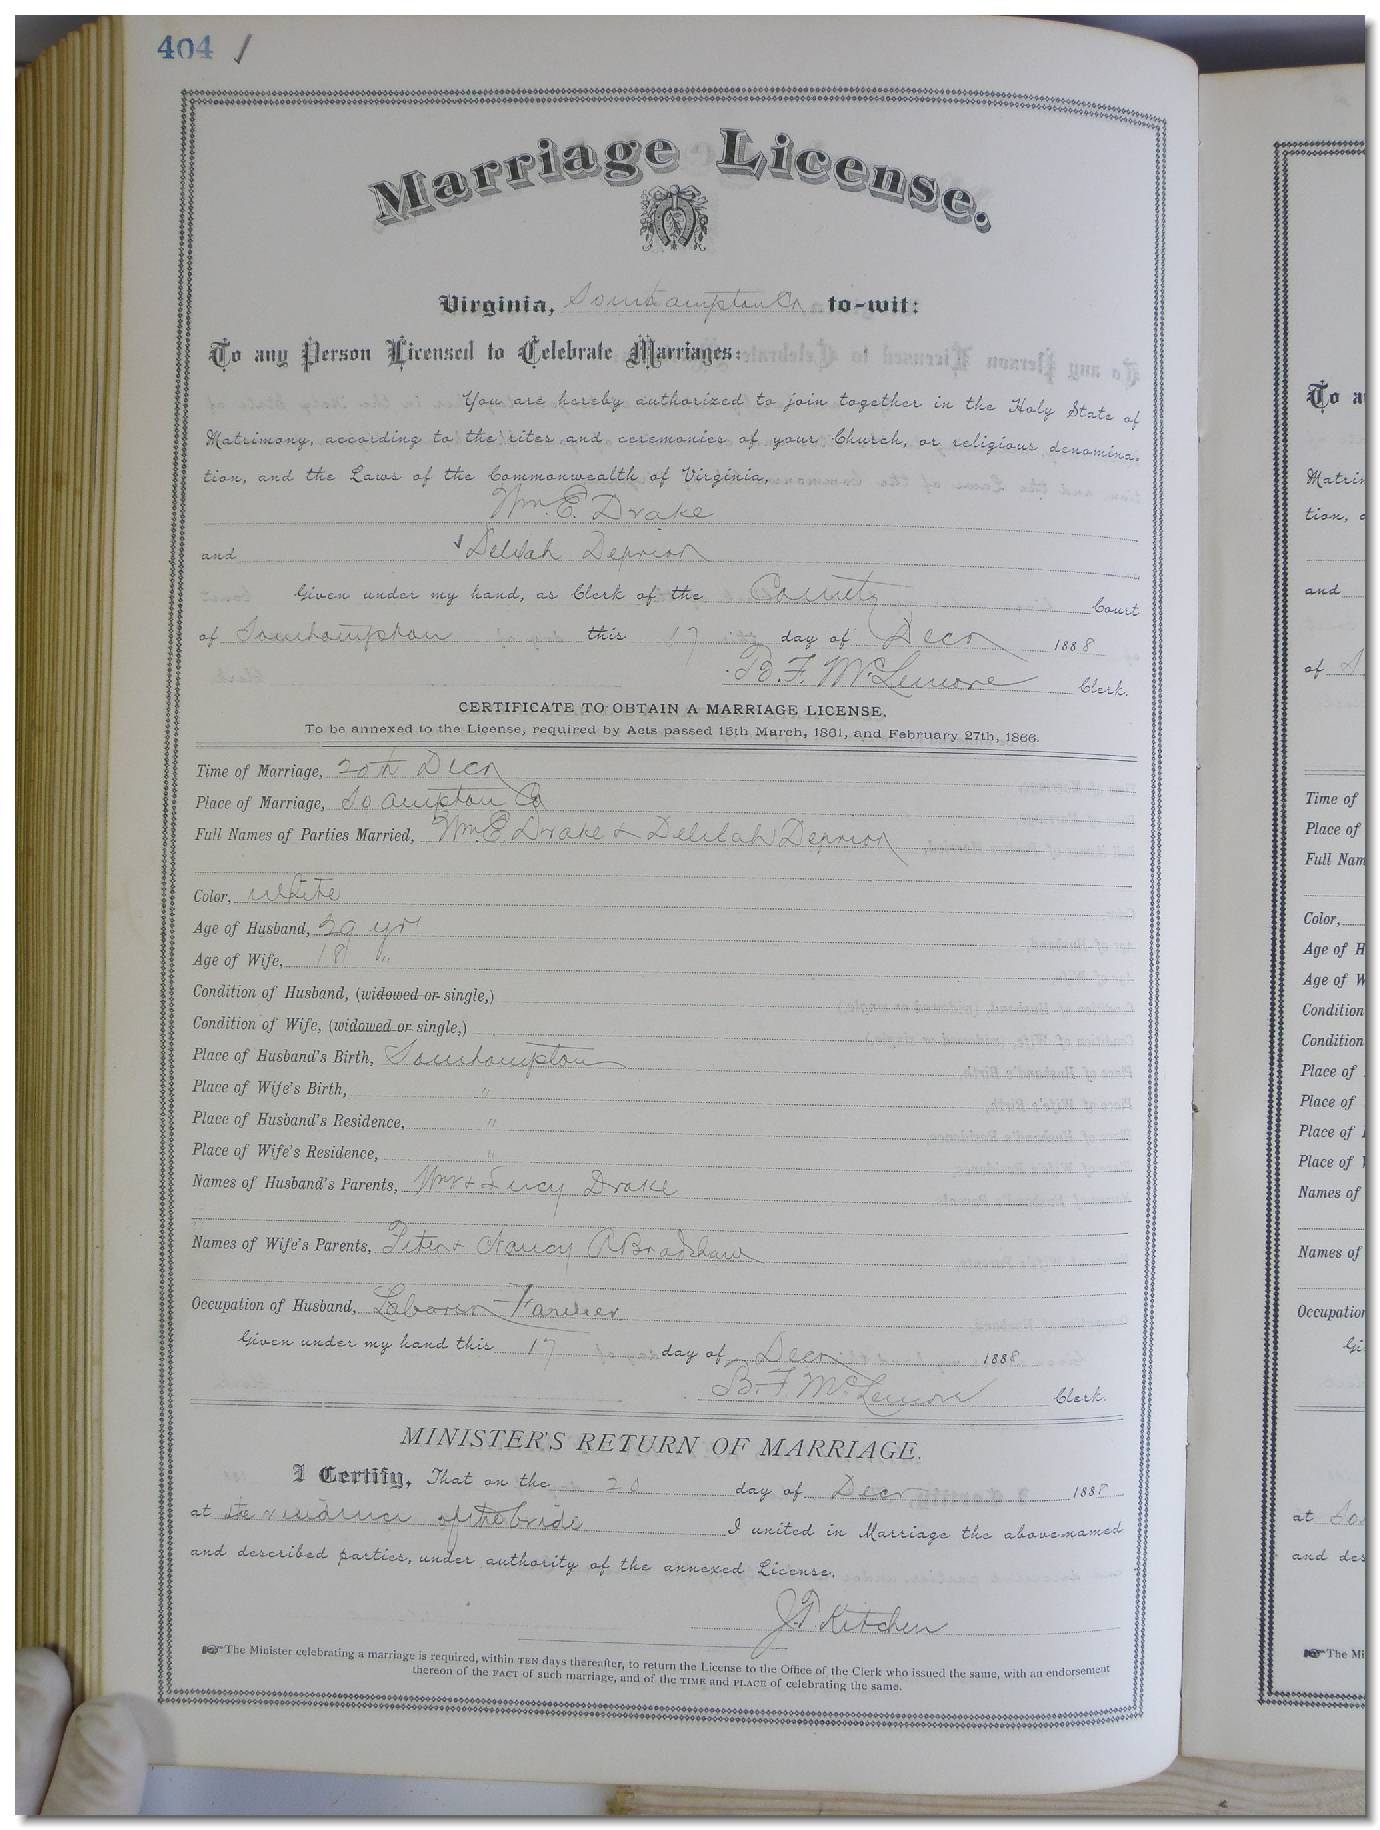 404 /
Marriage License.
Virginia, Southampton Co to-wit:
To any Person Licensed to Celebrate Marriages:
You are hereby authorized to join together in the Holy State of
Matrimony, according to the rites and ceremonies of your Church, or religious denomina-
tion, and the Laws of the Commonwealth of Virginia,
Wm. E. Drake
and Delilah Deprior
Given under my hand, as Clerk of the County Court
of Southampton this 17 day of Decr 1888
B. F. McLemore Clerk.
CERTIFICATE TO OBTAIN A MARRIAGE LICENSE.
To be annexed to the License, required by Acts passed 15th March, 1861, and February 27th, 1866.
Time of Marriage, 20th Decr
Place of Marriage, So ampton Co
Full Names of Parties Married, Wm E Drake & Delilah Deprior
Color, White
Age of Husband, 29 yr
Age of Wife, 18 "
Condition of Husband, (widowed or single,)
Condition of Wife, (widowed or single,)
Place of Husband's Birth, Southampton
Place of Wife's Birth, "
Place of Husband's Residence, "
Place of Wife's Residence, "
Names of Husband's Parents, Wm & Lucy Drake
Names of Wife's Parents, Peter & Nancy Bradshaw
Occupation of Husband, Laborer Farmer
Given under my hand this 17 day of Decr 1888
B. F. McLemore Clerk.
MINISTER'S RETURN OF MARRIAGE.
I Certify, That on the 20 day of Decr 1888
at the residence of the bride I united in Marriage the above-named
and described parties, under authority of the annexed License.
J. T. Kitchen
The Minister celebrating a marriage is required, within TEN days thereafter, to return the License to the Office of the Clerk who issued the same, with an endorsement
thereon of the FACT of such marriage, and of the TIME and PLACE of celebrating the same.
To a
Matrim
tion,
and
of
Time of
Place of
Full Nam
Color,
Age of H
Age of W
Condition
Condition
Place of
Place of
Place of
Place of
Names of
Names of
Occupation
Gi
at So
and des
The Mi